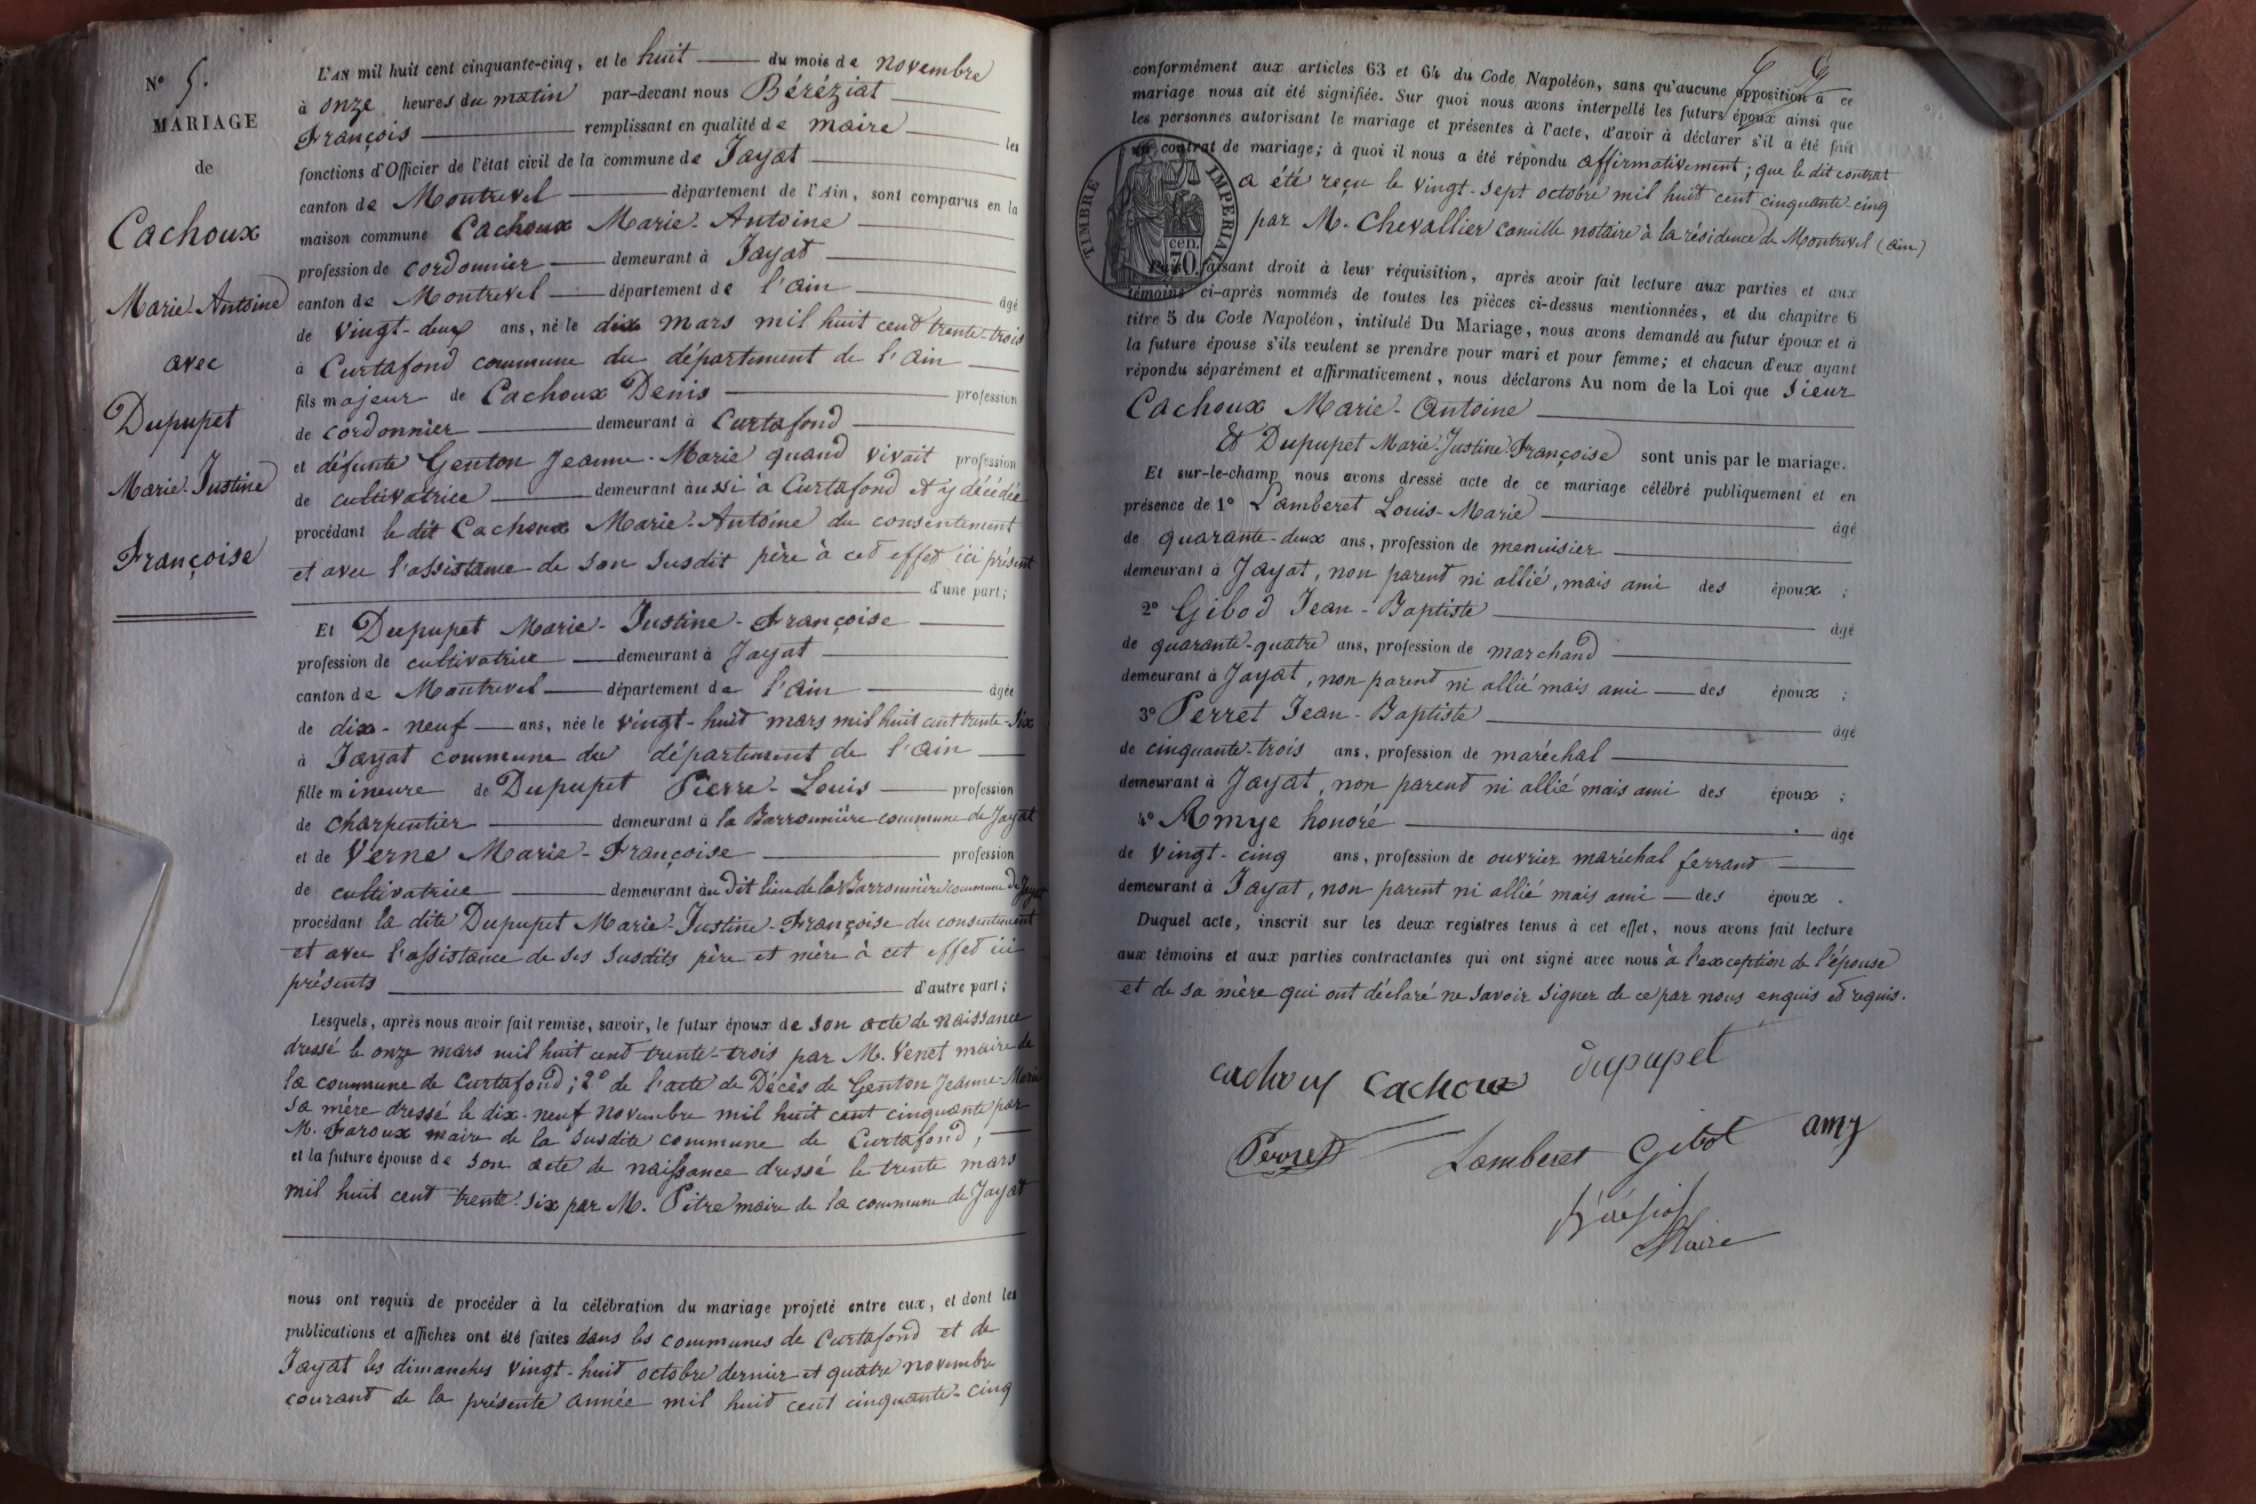 N° 5.
MARIAGE
de
Cachoux
Marie-Antoine
avec
Dupupet
Marie-Justine
Françoise
L'AN mil huit cent cinquante-cinq, et le huit du mois de novembre
à onze heures du matin par-devant nous Béréziat
François remplissant en qualité de maire les
fonctions d'Officier de l'état civil de la commune de Jayat
canton de Montrevel département de l'Ain, sont comparus en la
maison commune Cachoux Marie-Antoine
profession de cordonnier demeurant à Jayat
canton de Montrevel département de l'ain âgé
de vingt-deux ans, né le dix mars mil huit cent trente-trois
à Curtafond commune du département de l'ain
fils majeur de Cachoux Denis profession
de cordonnier demeurant à Curtafond
et défunte Genton Jeanne-Marie quand vivait profession
de cultivatrice demeurant aussi à Curtafond et y décédée
procédant le dit Cachoux Marie-Antoine du consentement
et avec l'assistance de son susdit père à cet effet ici présent
d'une part;
Et Dupupet Marie-Justine-Françoise
profession de cultivatrice demeurant à Jayat
canton de Montrevel département de l'ain âgée
de dix-neuf ans, née le vingt-huit mars mil huit cent trente-six
à Jayat commune du département de l'ain
fille mineure de Dupupet Pierre-Louis profession
de charpentier demeurant à la Barronnière commune de Jayat
et de Verne Marie-Françoise profession
de cultivatrice demeurant au dit lieu de la Barronnière commune de Jayat
procédant la dite Dupupet Marie-Justine-Françoise du consentement
et avec l'assistance de ses susdits père et mère à cet effet ici
présents d'autre part;
Lesquels, après nous avoir fait remise, savoir, le futur époux de son acte de naissance
dressé le onze mars mil huit cent trente-trois par M. Venet maire de
la commune de Curtafond; 2° de l'acte de Décès de Genton Jeanne-Marie
sa mère dressé le dix-neuf novembre mil huit cent cinquante par
M. Faroux maire de la susdite commune de Curtafond;
et la future épouse de son acte de naissance dressé le trente mars
mil huit cent trente-six par M. Pitre maire de la commune de Jayat
nous ont requis de procéder à la célébration du mariage projeté entre eux, et dont les
publications et affiches ont été faites dans les communes de Curtafond et de
Jayat les dimanches vingt-huit octobre dernier et quatre novembre
courant de la présente année mil huit cent cinquante-cinq
conformément aux articles 63 et 64 du Code Napoléon, sans qu'aucune opposition à ce
mariage nous ait été signifiée. Sur quoi nous avons interpellé les futurs époux ainsi que
les personnes autorisant le mariage et présentes à l'acte, d'avoir à déclarer s'il a été fait
un contrat de mariage; à quoi il nous a été répondu affirmativement; que le dit contrat
a été reçu le vingt-sept octobre mil huit cent cinquante-cinq
par M. Chevallier Camille notaire à la résidence de Montrevel (ain)
TIMBRE IMPERIAL
cen.
70
faisant droit à leur réquisition, après avoir fait lecture aux parties et aux
témoins ci-après nommés de toutes les pièces ci-dessus mentionnées, et du chapitre 6
titre 5 du Code Napoléon, intitulé Du Mariage, nous avons demandé au futur époux et à
la future épouse s'ils veulent se prendre pour mari et pour femme; et chacun d'eux ayant
répondu séparément et affirmativement, nous déclarons Au nom de la Loi que Sieur
Cachoux Marie-Antoine
Et Dupupet Marie-Justine-Françoise sont unis par le mariage.
Et sur-le-champ nous avons dressé acte de ce mariage célébré publiquement et en
présence de 1° Lamberet Louis-Marie âgé
de quarante-deux ans, profession de menuisier
demeurant à Jayat, non parent ni allié, mais ami des époux;
2° Gibod Jean-Baptiste âgé
de quarante-quatre ans, profession de marchand
demeurant à Jayat, non parent ni allié mais ami des époux;
3° Perret Jean-Baptiste âgé
de cinquante-trois ans, profession de maréchal
demeurant à Jayat, non parent ni allié mais ami des époux;
4° Amye honoré âgé
de vingt-cinq ans, profession de ouvrier maréchal ferrant
demeurant à Jayat, non parent ni allié mais ami des époux.
Duquel acte, inscrit sur les deux registres tenus à cet effet, nous avons fait lecture
aux témoins et aux parties contractantes qui ont signé avec nous à l'exception de l'épouse
et de sa mère qui ont déclaré ne savoir signer de ce par nous enquis et requis.
cachoux Cachoux Dupupet
Perret Lamberet Gibot amy
Béréziat
Maire